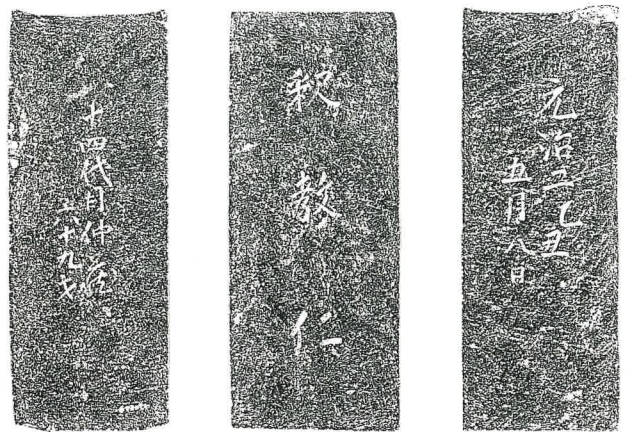 元治二乙丑
五月八日
釈教仁
十四代目仲蔵
六十九才